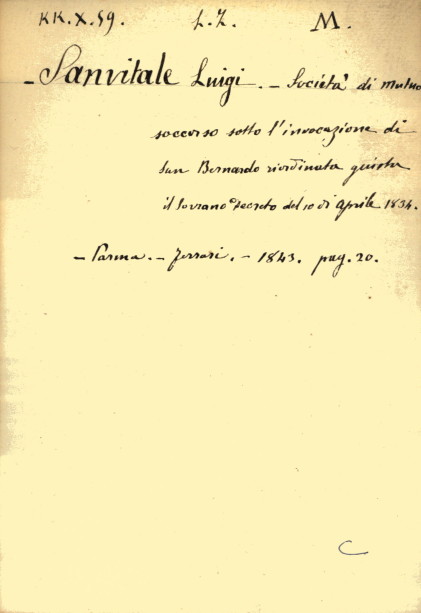 KK.X.59. L.Z. M.
- Sanvitale Luigi. - Società di mutuo
soccorso sotto l'invocazione di
San Bernardo riordinata giusta
il Sovrano Decreto del 10 di Aprile 1834.
- Parma. - Ferrari. - 1843. pag. 20.
C